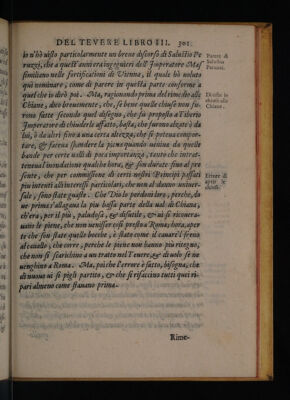 DEL TEVERE LIBRO III. 301
io n'hò visto particolarmente un breve discorso di Salustio Pe
ruzzi, che a quest'anni era ingegniero dell'Imperatore Mas
similiano nelle fortificationi di Vienna, il quale hò voluto
qui nominare, come di parere in questa parte conforme a
quel che io dirò poi. Ma, ragionando prima del rimedio alle
Chiane, dico brevemente, che, se bene quelle chiuse non fu
rono fatte secondo quel disegno, che fu proposto a Tiberio
Imperatore di chiuderle affatto, basta, che furono alzate ò da
lui, ò da altri fino a una certa altezza, che si poteva compor-
tare, & faceva spandere la piena quando veniva da quelle
bande per certe valli di poca importanza, tanto che intrat-
teneva l'inondatione qualche hora, & son durate fino al pre
sente, che per commissione di certi nostri Principi passati
più intenti alli interessi particolari, che non al danno univer-
sale, sono state guaste. Che Dio le perdoni loro, perche, do
ue prima s'allagava la più bassa parte della val di Chiana,
ch'era, per il più, paludosa, & disutile, & vi si ricovera-
vano le piene, che non venissero così presto a Roma, hora, aper
te che son state quelle bocche, è stato come il cavare il freno
al cavallo, che corre, perche le piene non hanno più ritegno,
che non si scarichino a un tratto nel Tevere, & di volo se ne
venghino a Roma. Ma, poi che l'errore è fatto, bisogna, che
di nuovo vi si pigli partito, & che si rifaccino tutti quei ri-
pari almeno come stavano prima.
Rime-
Parere di
Salustio
Peruzzi.
Discorso in
chiuder alle
Chiane.
Errore di
aprir le
chiuse.